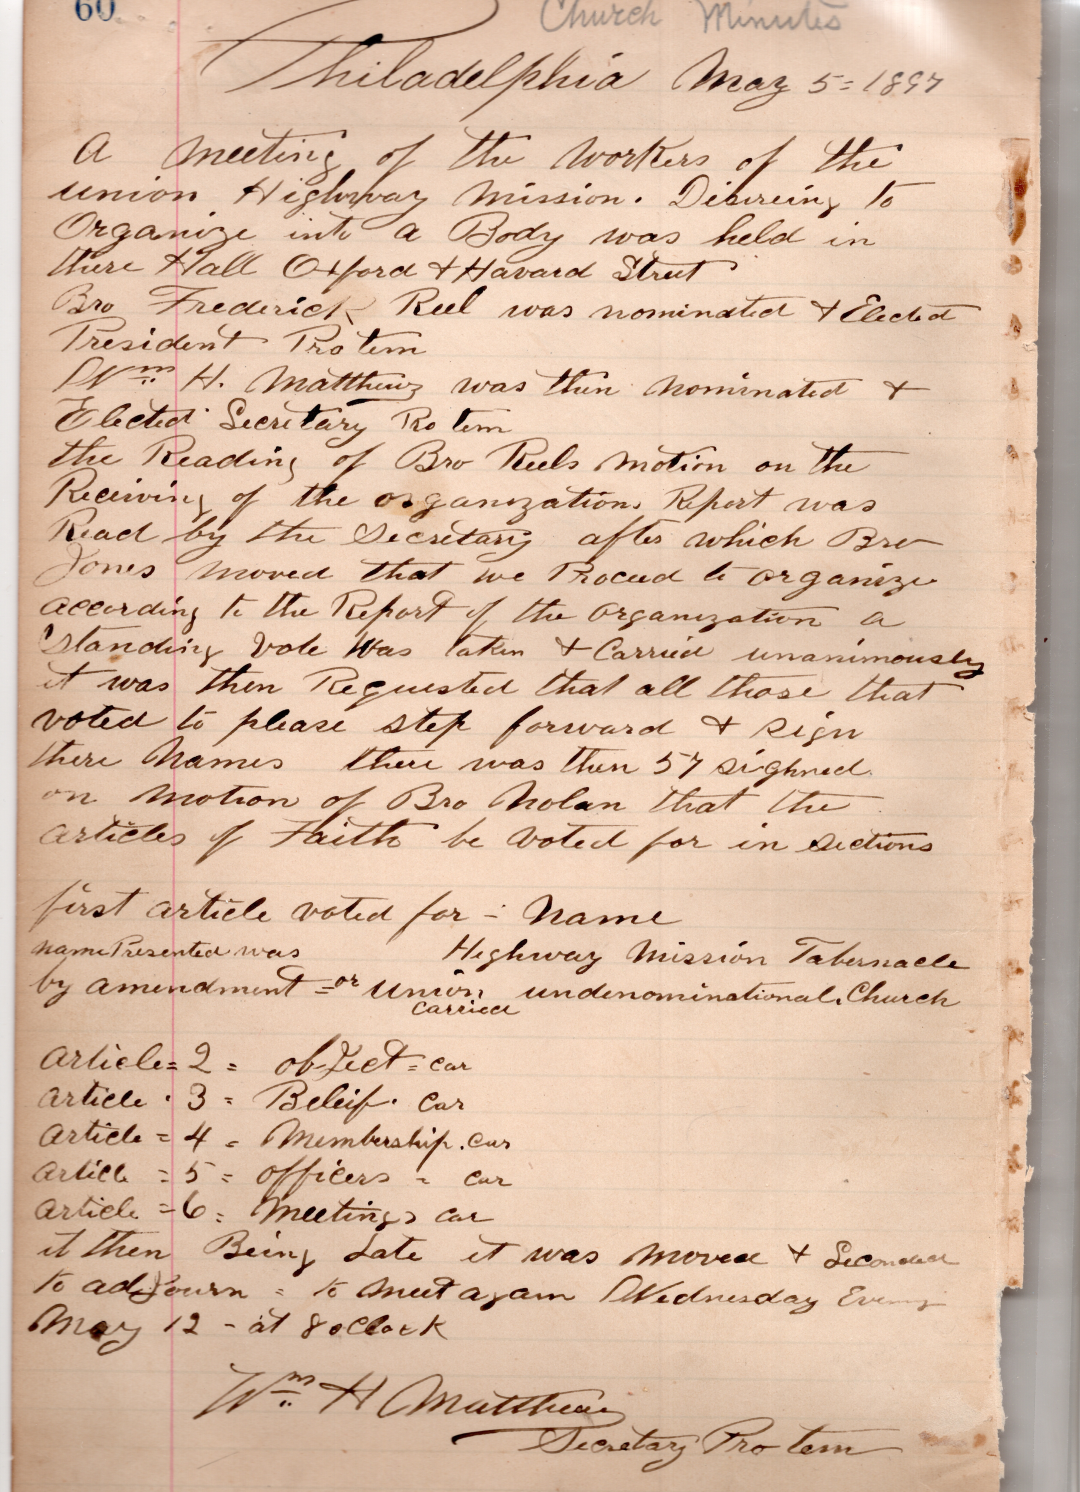 60
Church Minutes
Philadelphia May 5 = 1897
A meeting of the workers of the
union Highway Mission. Disireing to
Organize into a Body was held in
there Hall Oxford & Havard Street
Bro Frederick Reel was nominated & Elected
President Protem
Wm H. Matthews was then nominated &
Elected Secretary Pro tem
the Reading of Bro Reels motion on the
Receiving of the organizations Report was
Read by the Secretary after which Bro
Jones moved that we Proceed to organize
according to the Report of the organization a
standing vote was taken & Carried unanimously
it was then Requested that all those that
voted to please step forward & sign
there names there was then 57 sighned
on motion of Bro Nolan that the
articles of Faith be voted for in sections
first article voted for - Name
name Presented was Highway Mission Tabernacle
by amendment = or union undenominational. Church
carried
article = 2 = object = car
article . 3 = Beleif . car
article = 4 = Membership . car
article = 5 = officers - car
article = 6 = Meetings car
it then Being Late it was moved & Seconded
to adjourn = to meet again Wednesday Evening
May 12 - at 8 oClock
Wm H Matthews
Secretary Pro tem